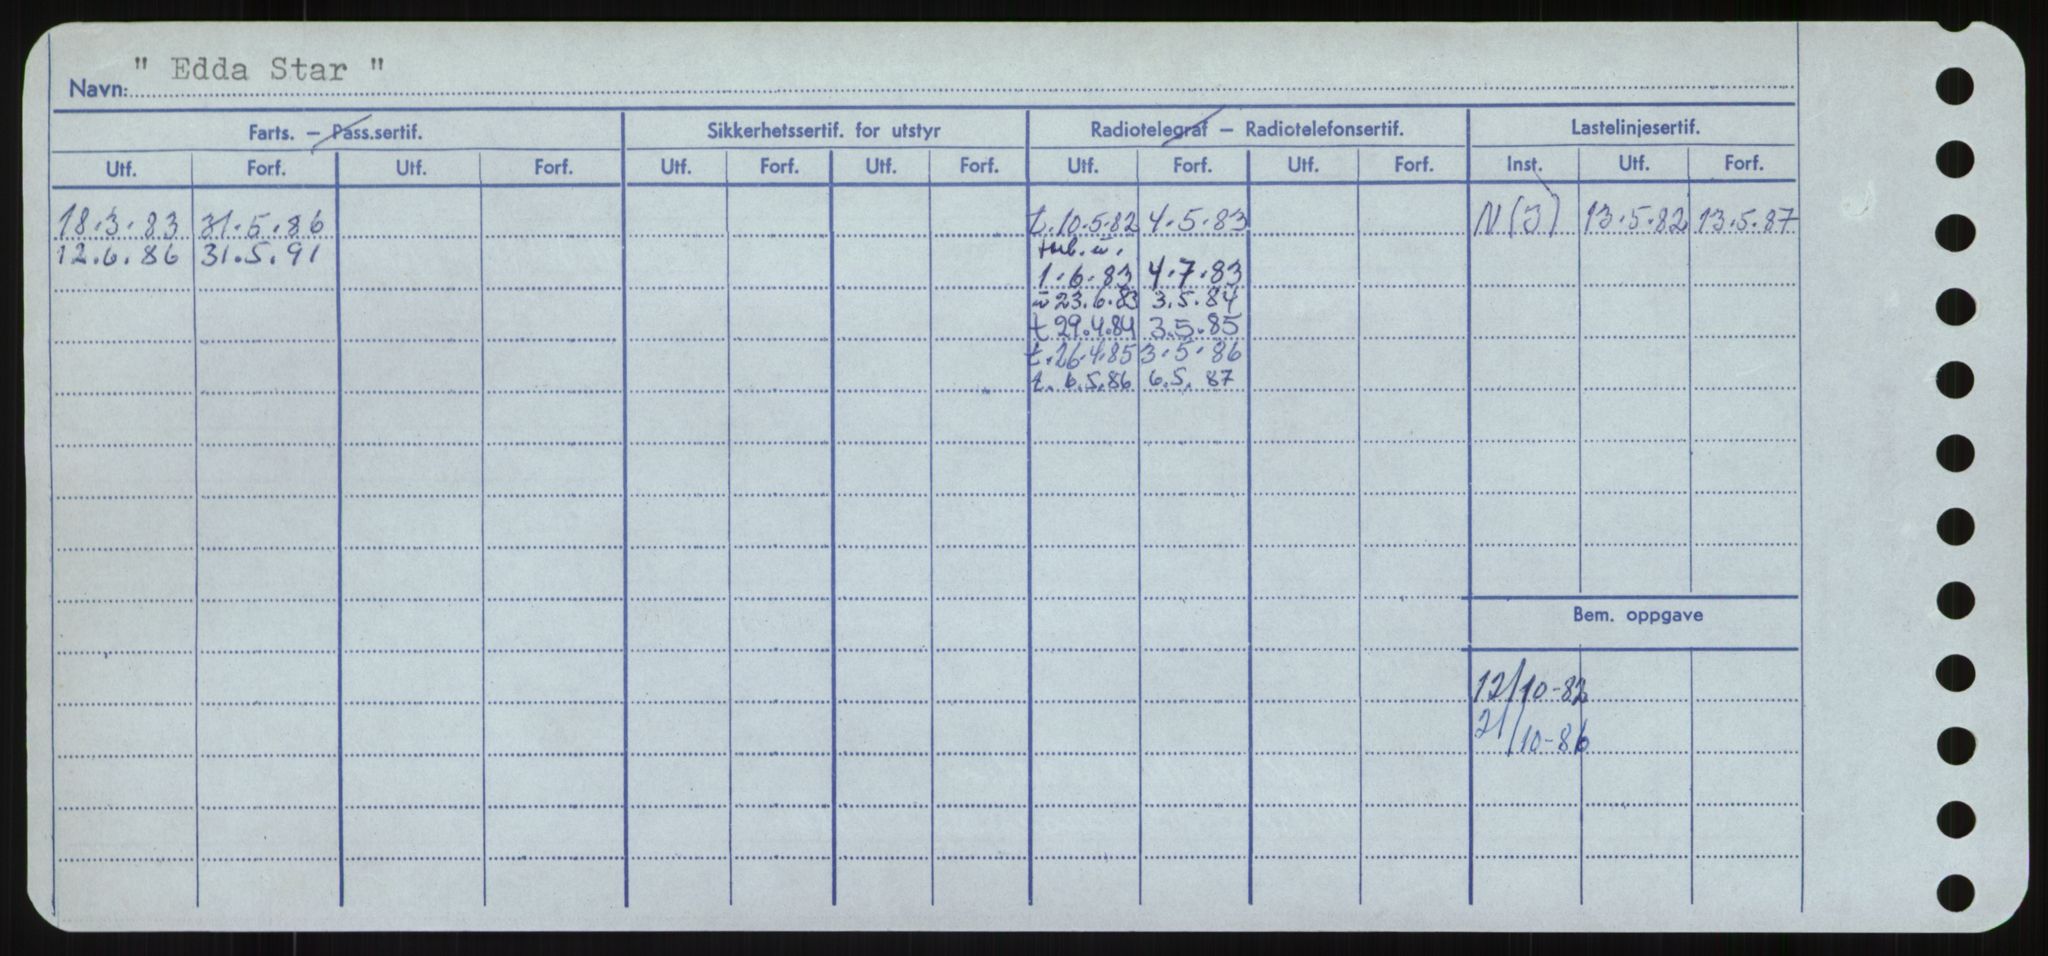 Navn: " Edda Star "
Farts. – Pass.sertif. Sikkerhetssertif. for utstyr Radiotelegraf – Radiotelefonsertif. Lastelinjesertif.
Utf. Forf. Utf. Forf. Utf. Forf. Utf. Forf. Utf. Forf. Utf. Forf. Inst. Utf. Forf.
18.3.83 31.5.86 t. 10.5.82 4.5.83 N (J) 13.5.82 13.5.87
12.6.86 31.5.91
1.6.83 4.7.83
23.6.83 3.5.84
t 29.4.84 3.5.85
t. 26.4.85 3.5.86
t. 6.5.86 6.5.87
Bem. oppgave
12/10-82
21/10-86